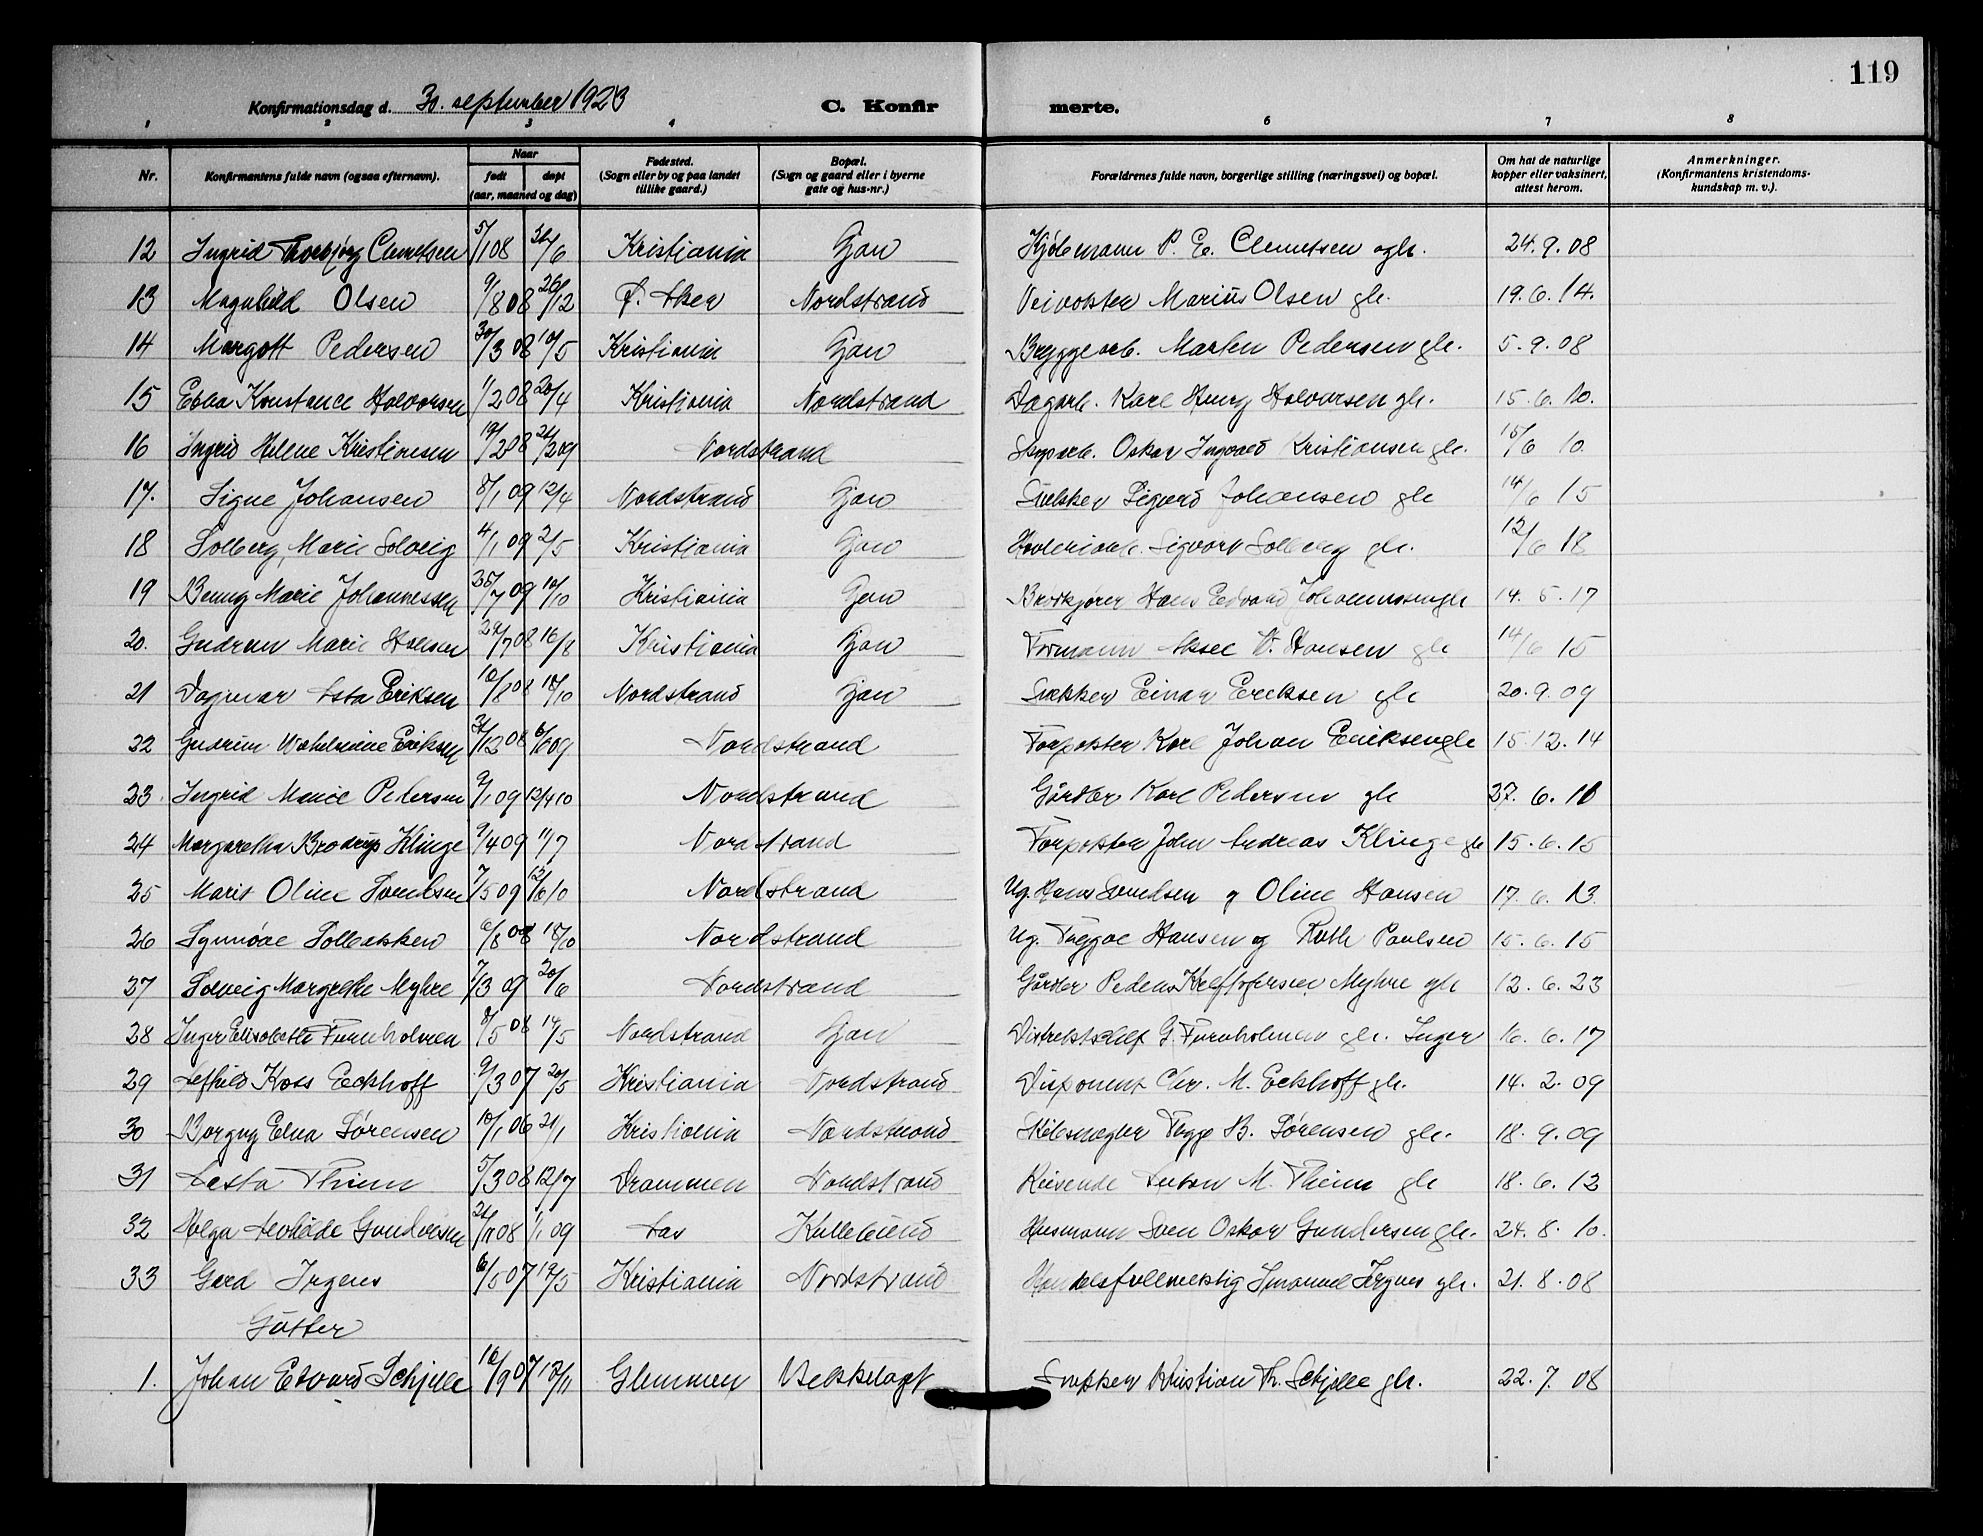 119
Konfirmationsdag d. 30. september 1923 C. Konfirmerte.
1 2 3 4 6 7 8
Nr. Konfirmantens fulde navn (ogsaa efternavn). Naar født døpt (aar, maaned og dag) Fødested. (Sogn eller by og paa landet tillike gaard.) Bopæl. (Sogn og gaard eller i byerne gate og hus-nr.) Forældrenes fulde navn, borgerlige stilling (næringsvei) og bopæl. Om hat de naturlige kopper eller vaksinert, attest herom. Anmerkninger. (Konfirmantens kristendoms-kundskap m. v.).
12 Ingrid Thorbjørg Clemetsen 5/1 08 /6 Kristiania Ljan Kjøbmann P. E. Clemetsen og h. 24.9.08
13 Magnhild Olsen 9/8 08 26/12 Ø. Aker Nordstrand Veivokter Marius Olsen gh. 19.6.14.
14 Margott Pedersen 30/3 08 10/5 Kristiania Ljan Bryggearb. Marten Pedersen gh. 5.9.08
15 Ebba Konstance Halvorsen 1/2 08 20/4 Kristiania Nordstrand Dagarb. Karl Henry Halvorsen gh. 15.6.10.
16 Ingrid Helene Kristiansen 19/2 08 21/3 09 Nordstrand Oskar Ingvald Kristiansen gh. 15/6 10.
17. Signe Johansen 8/1 09 12/4 Nordstrand Ljan Snekker Sigurd Johansen gh 14/6 15
18 Solberg, Marie Solveig 4/1 09 2/5 Kristiania Ljan Sigvart Solberg gh. 12/6 18
19 Benny Marie Johannessen 25/7 09 10/10 Kristiania Ljan Brødkjører Hans Edvard Johannesen gh 14.5.17
20. Gudrun Marie Hansen 29/7 08 16/8 Kristiania Ljan Formann Aksel V. Hansen gh 14/6 15
21 Dagmar Asta Eriksen 10/8 08 18/10 Nordstrand Ljan Snekker Einar Eriksen gh 20.9.09
22 Gudrun Wilhelmine Eriksen 31/12 08 6/6 09 Nordstrand Forpakter Karl Johan Eriksen gh 15.12.14
23. Ingrid Marie Pedersen 9/1 09 12/4 10 Nordstrand Gårdbr Karl Pedersen gh 27.6.10
24 Margaretha Brodrup Klinge 9/4 09 11/7 Nordstrand Forpakter John Andreas Klinge gh 15.6.15
25 Marit Oline Svendsen 7/5 09 12/6 10 Nordstrand Ug. Hans Svendsen og Oline Hansen 17.6.13.
26 Synnöve Solbakken 6/8 08 18/10 Nordstrand Ug. Trygve Hansen og Ruth Paulsen 15.6.15
27 Solveig Margrethe Myhre 7/3 09 20/6 Nordstrand Gårdbr Peder Kristofersen Myhre gh 12.6.23
28 Inger Elisabeth Furuholmen 8/5 08 14/5 Nordstrand Ljan G. Furuholmen gh. Inger 16.6.17
29 Aslhild Koss Eckhoff 9/3 07 20/5 Kristiania Nordstrand Disponent Chr. M. Eckhoff gh. 14.2.09
30 Borgny Elna Sørensen 10/1 06 21/1 Kristiania Nordstrand Skibsmegler Trygve B. Sørensen gh. 18.9.09
31 Aasta Thime 5/3 08 12/7 Drammen Nordstrand Reisende Anton M. Thime gh 18.6.12
32 Helga Gundersen /11 08 1/1 09 Aas Kullebund Husmann Sven Oskar Gundersen gh. 24.8.10.
33 Gerd Irgens 16/5 07 19/5 Kristiania Nordstrand Handelsfullmektig Imanuel Irgens gh. 21.8.08
Gutter
1. Johan Edvard Schjelle 16/9 07 17/11 Glemmen Bekkelaget Snekker Kristian Th. Schjelle gh. 22.7.08